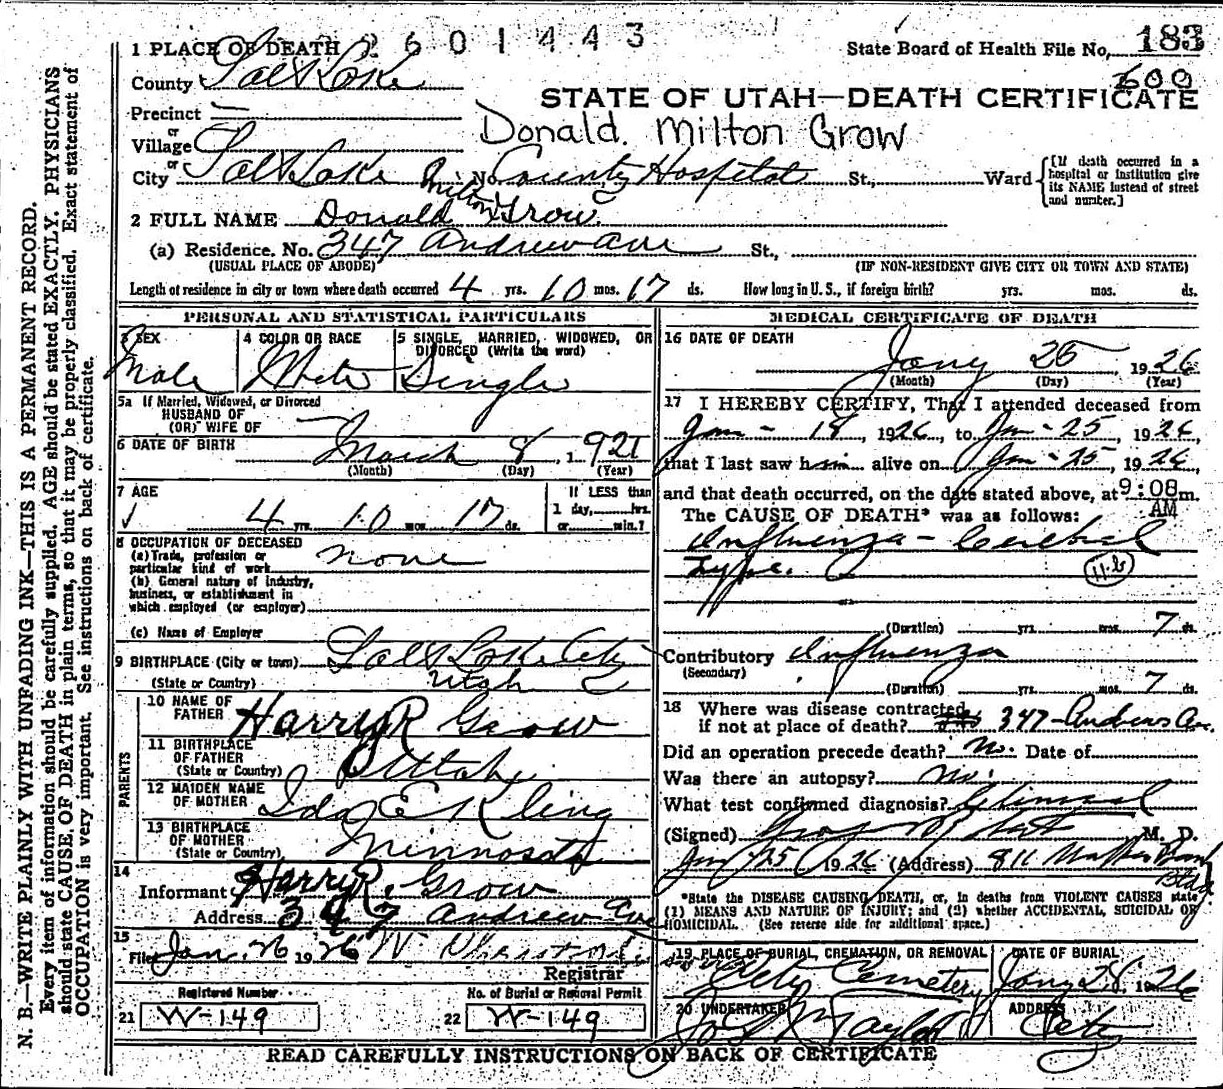 N. B.—WRITE PLAINLY WITH UNFADING INK—THIS IS A PERMANENT RECORD.
Every item of information should be carefully supplied. AGE should be stated EXACTLY. PHYSICIANS
should state CAUSE OF DEATH in plain terms, so that it may be properly classified. Exact statement of
OCCUPATION is very important. See instructions on back of certificate.
2601443
State Board of Health File No. 183
600
1 PLACE OF DEATH
County Salt Lake
STATE OF UTAH—DEATH CERTIFICATE
Precinct —
or
Village
Donald. Milton Grow
or
City Salt Lake No. County Hospital St., Ward
[If death occurred in a
hospital or institution give
its NAME instead of street
and number.]
2 FULL NAME Donald Milton Grow
(a) Residence. No. 347 Andrew Ave St.,
(USUAL PLACE OF ABODE) (IF NON-RESIDENT GIVE CITY OR TOWN AND STATE)
Length of residence in city or town where death occurred 4 yrs. 10 mos. 17 ds. How long in U. S., if foreign birth? yrs. mos. ds.
PERSONAL AND STATISTICAL PARTICULARS
3 SEX
Male
4 COLOR OR RACE
White
5 SINGLE, MARRIED, WIDOWED, OR
DIVORCED (Write the word)
Single
5a If Married, Widowed, or Divorced
HUSBAND OF
(OR) WIFE OF —
6 DATE OF BIRTH March 8, 1921
(Month) (Day) (Year)
7 AGE
4 yrs. 10 mos. 17 ds.
If LESS than
1 day, hrs.
or min.?
8 OCCUPATION OF DECEASED
(a) Trade, profession or
particular kind of work none
(b) General nature of industry,
business, or establishment in
which employed (or employer)
(c) Name of Employer
9 BIRTHPLACE (City or town) Salt Lake City
(State or Country) Utah
PARENTS
10 NAME OF
FATHER Harry R Grow
11 BIRTHPLACE
OF FATHER
(State or Country) Utah
12 MAIDEN NAME
OF MOTHER Ida E Kling
13 BIRTHPLACE
OF MOTHER
(State or Country) Minnosota
14
Informant Harry R. Grow
Address 347 Andrew Ave
15
Filed Jan. 26 1926 W
Registrar
Registered Number
21 W-149
No. of Burial or Removal Permit
22 W-149
MEDICAL CERTIFICATE OF DEATH
16 DATE OF DEATH
Jany 25, 1926
(Month) (Day) (Year)
17 I HEREBY CERTIFY, That I attended deceased from
Jan - 18, 1926, to Jan - 25, 1926,
that I last saw him alive on Jan - 25, 1926,
and that death occurred, on the date stated above, at 9:08 m.
AM
The CAUSE OF DEATH* was as follows:
Influenza - Cerebral
type.
11b
(Duration) yrs. mos. 7 ds.
Contributory Influenza
(Secondary)
(Duration) yrs. mos. 7 ds.
18 Where was disease contracted
if not at place of death? 347 - Andrews Ave.
Did an operation precede death? No. Date of
Was there an autopsy? No.
What test confirmed diagnosis? Clinical
(Signed) M. D.
Jan 25 1926 (Address) 811 Bank
Bldg
*State the DISEASE CAUSING DEATH, or, in deaths from VIOLENT CAUSES state
(1) MEANS AND NATURE OF INJURY; and (2) whether ACCIDENTAL, SUICIDAL OR
HOMICIDAL. (See reverse side for additional space.)
19 PLACE OF BURIAL, CREMATION, OR REMOVAL
City Cemetery
DATE OF BURIAL
Jany 28, 1926
20 UNDERTAKER
Taylor
ADDRESS
City
READ CAREFULLY INSTRUCTIONS ON BACK OF CERTIFICATE